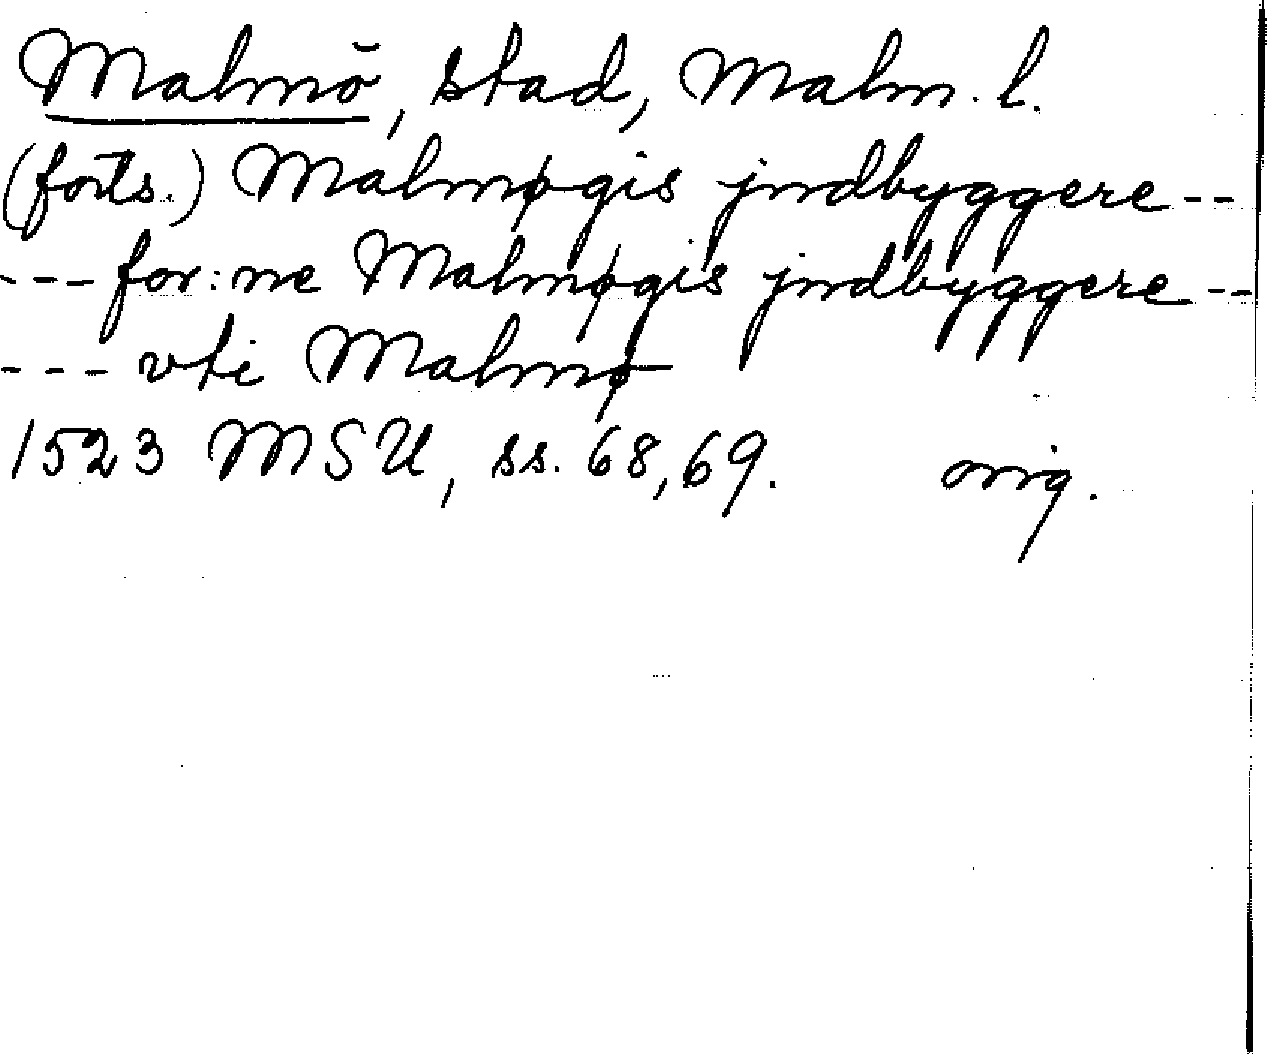 Malmö, stad, Malm. l.
(forts.) Malmøgis jndbyggere --
--- for:ne Malmøgis jndbyggere --
--- vti Malmø
1523 MSU, ss. 68,69. orig.